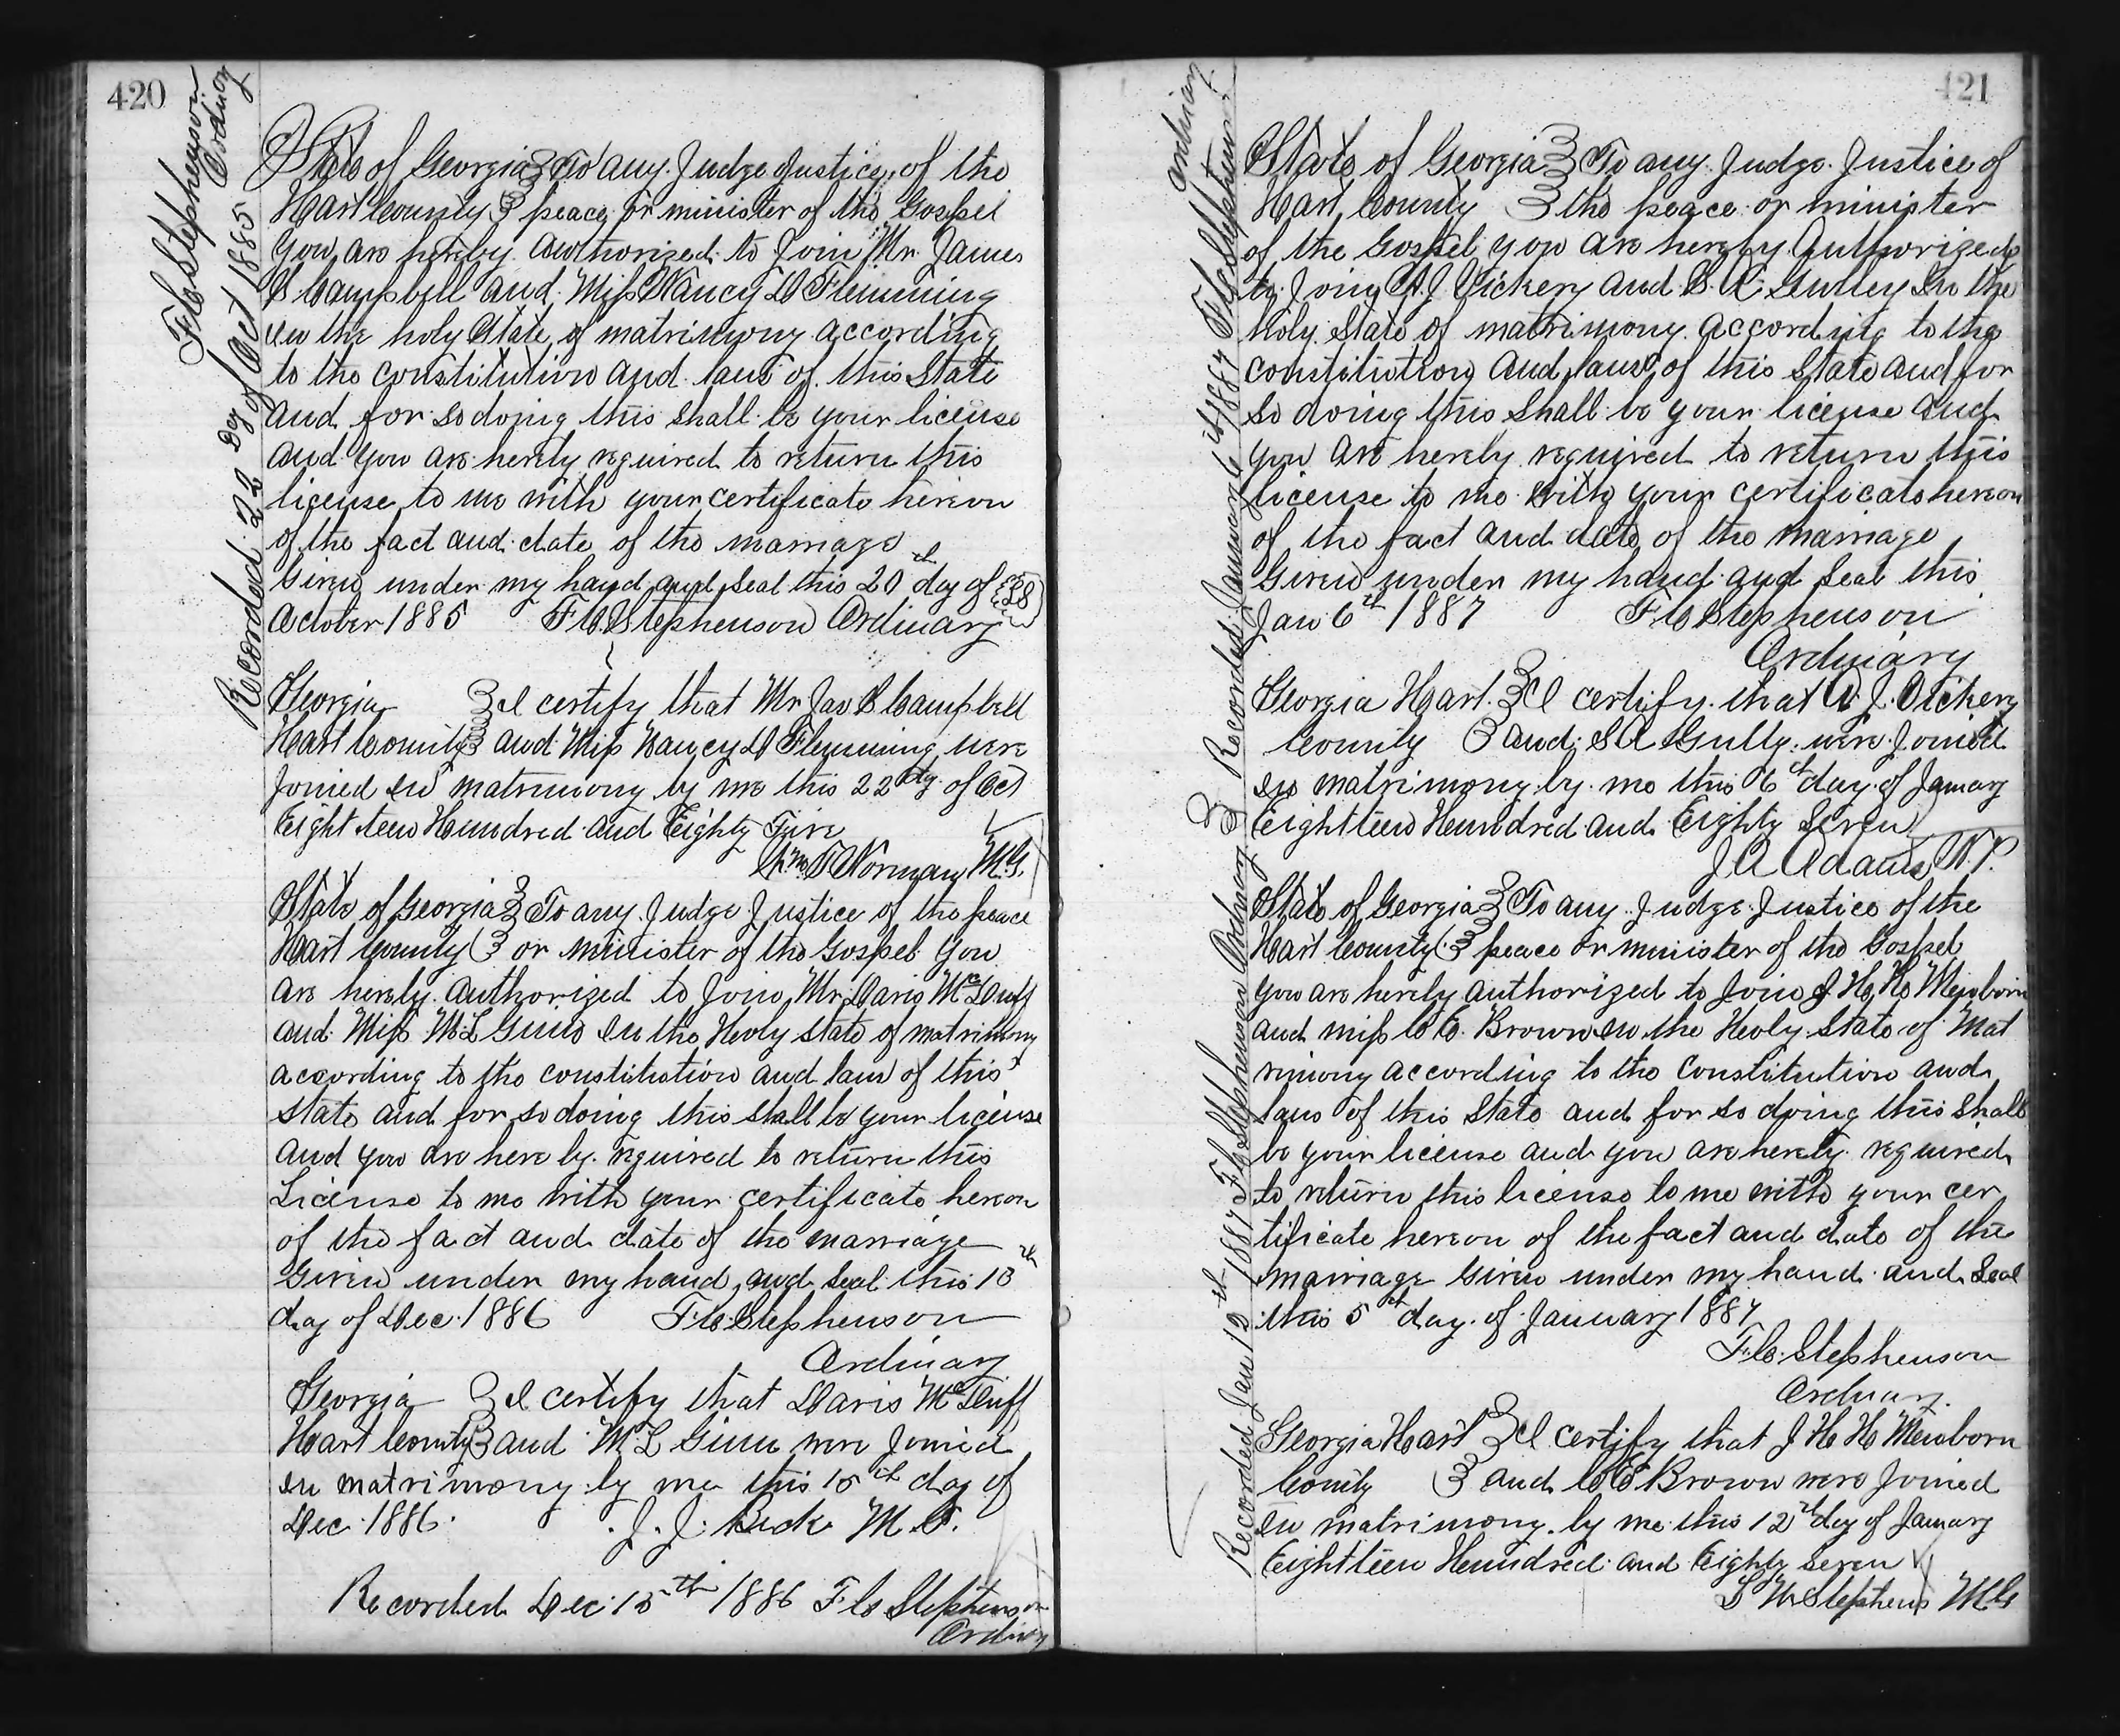 420
State of Georgia } To any Judge Justice of the
Hart County } peace or minister of the Gospel
you are hereby authorized to Join Mr. James
Campbell and Miss Nancy Flemming
in the holy State of matrimony according
to the constitution and laws of this State
and for so doing this shall be your license
and you are hereby required to return this
license to me with your certificate hereon
of the fact and date of the marriage
Given under my hand and seal this 20th day of
October 1885 F. C. Stephenson Ordinary
Georgia } I certify that Mr Jas Campbell
Hart County } and Miss Nancy Flemming were
Joined in matrimony by me this 22 dy of Oct
Eighteen Hundred and Eighty Five
Norman M.G.
Recorded 22 Dy of Oct 1885
F C Stephenson
Ordinary
State of Georgia } To any Judge Justice of the peace
Hart County } or minister of the Gospel you
are hereby authorized to Join Mr. Davis McDuff
and Miss M L Ginn in the Holy state of matrimony
according to the constitution and laws of this
state and for so doing this shall be your license
and you are here by required to return this
License to me with your certificate hereon
of the fact and date of the marriage
Given under my hand and seal this 13th
day of Dec. 1886 F. C. Stephenson
Ordinary
Georgia } I certify that Davis McDuff
Hart County } and M. L Ginn were Joined
in matrimony by me this 15th day of
Dec. 1886. J. J. M. G.
Recorded Dec. 15th 1886 F C Stephenson
Ordinary
421
State of Georgia } To any Judge Justice of
Hart County } the peace or minister
of the Gospel you are hereby Authorized
to Join A. J. Vickery and S. A. Gulley In the
Holy State of matrimony according to the
constitution and laws of this State and for
so doing this shall be your license and
you are hereby required to return this
license to me with your certificate hereon
of the fact and date of the marriage
Given under my hand and seal this
Jan 6th 1887 F C Stephenson
Ordinary
Georgia Hart } I certify that A. J. Vickery
County } and S A Gully were Joined
in matrimony by me this 6th day of January
Eighteen Hundred and Eighty Seven
J A Adams N.P.
Recorded January 6th 1887 F C Stephenson
ordinary
State of Georgia } To any Judge Justice of the
Hart County } peace or minister of the Gospel
you are hereby authorized to Join J H H Mewborn
and miss C E Brown in the Holy State of Mat
rimony according to the Constitution and
laws of this State and for so doing this shall
be your license and you are hereby required
to return this license to me with your cer
tificate hereon of the fact and date of the
marriage Given under my hand and Seal
this 5th day of January 1887
F. C. Stephenson
Ordinary.
Georgia Hart } I certify that J H H Mewborn
County } and C E Brown were Joined
in matrimony by me this 12th day of January
Eighteen Hundred and Eighty Seven
Stephens M G
Recorded Jan 12th 1887 F C Stephenson Ordinary